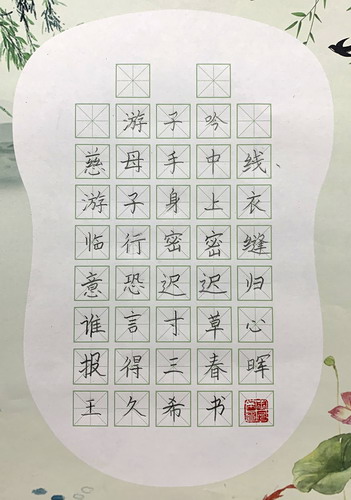 游子吟
慈母手中线、
游子身上衣
临行密密缝
意恐迟迟归
谁言寸草心
报得三春晖
王久希书